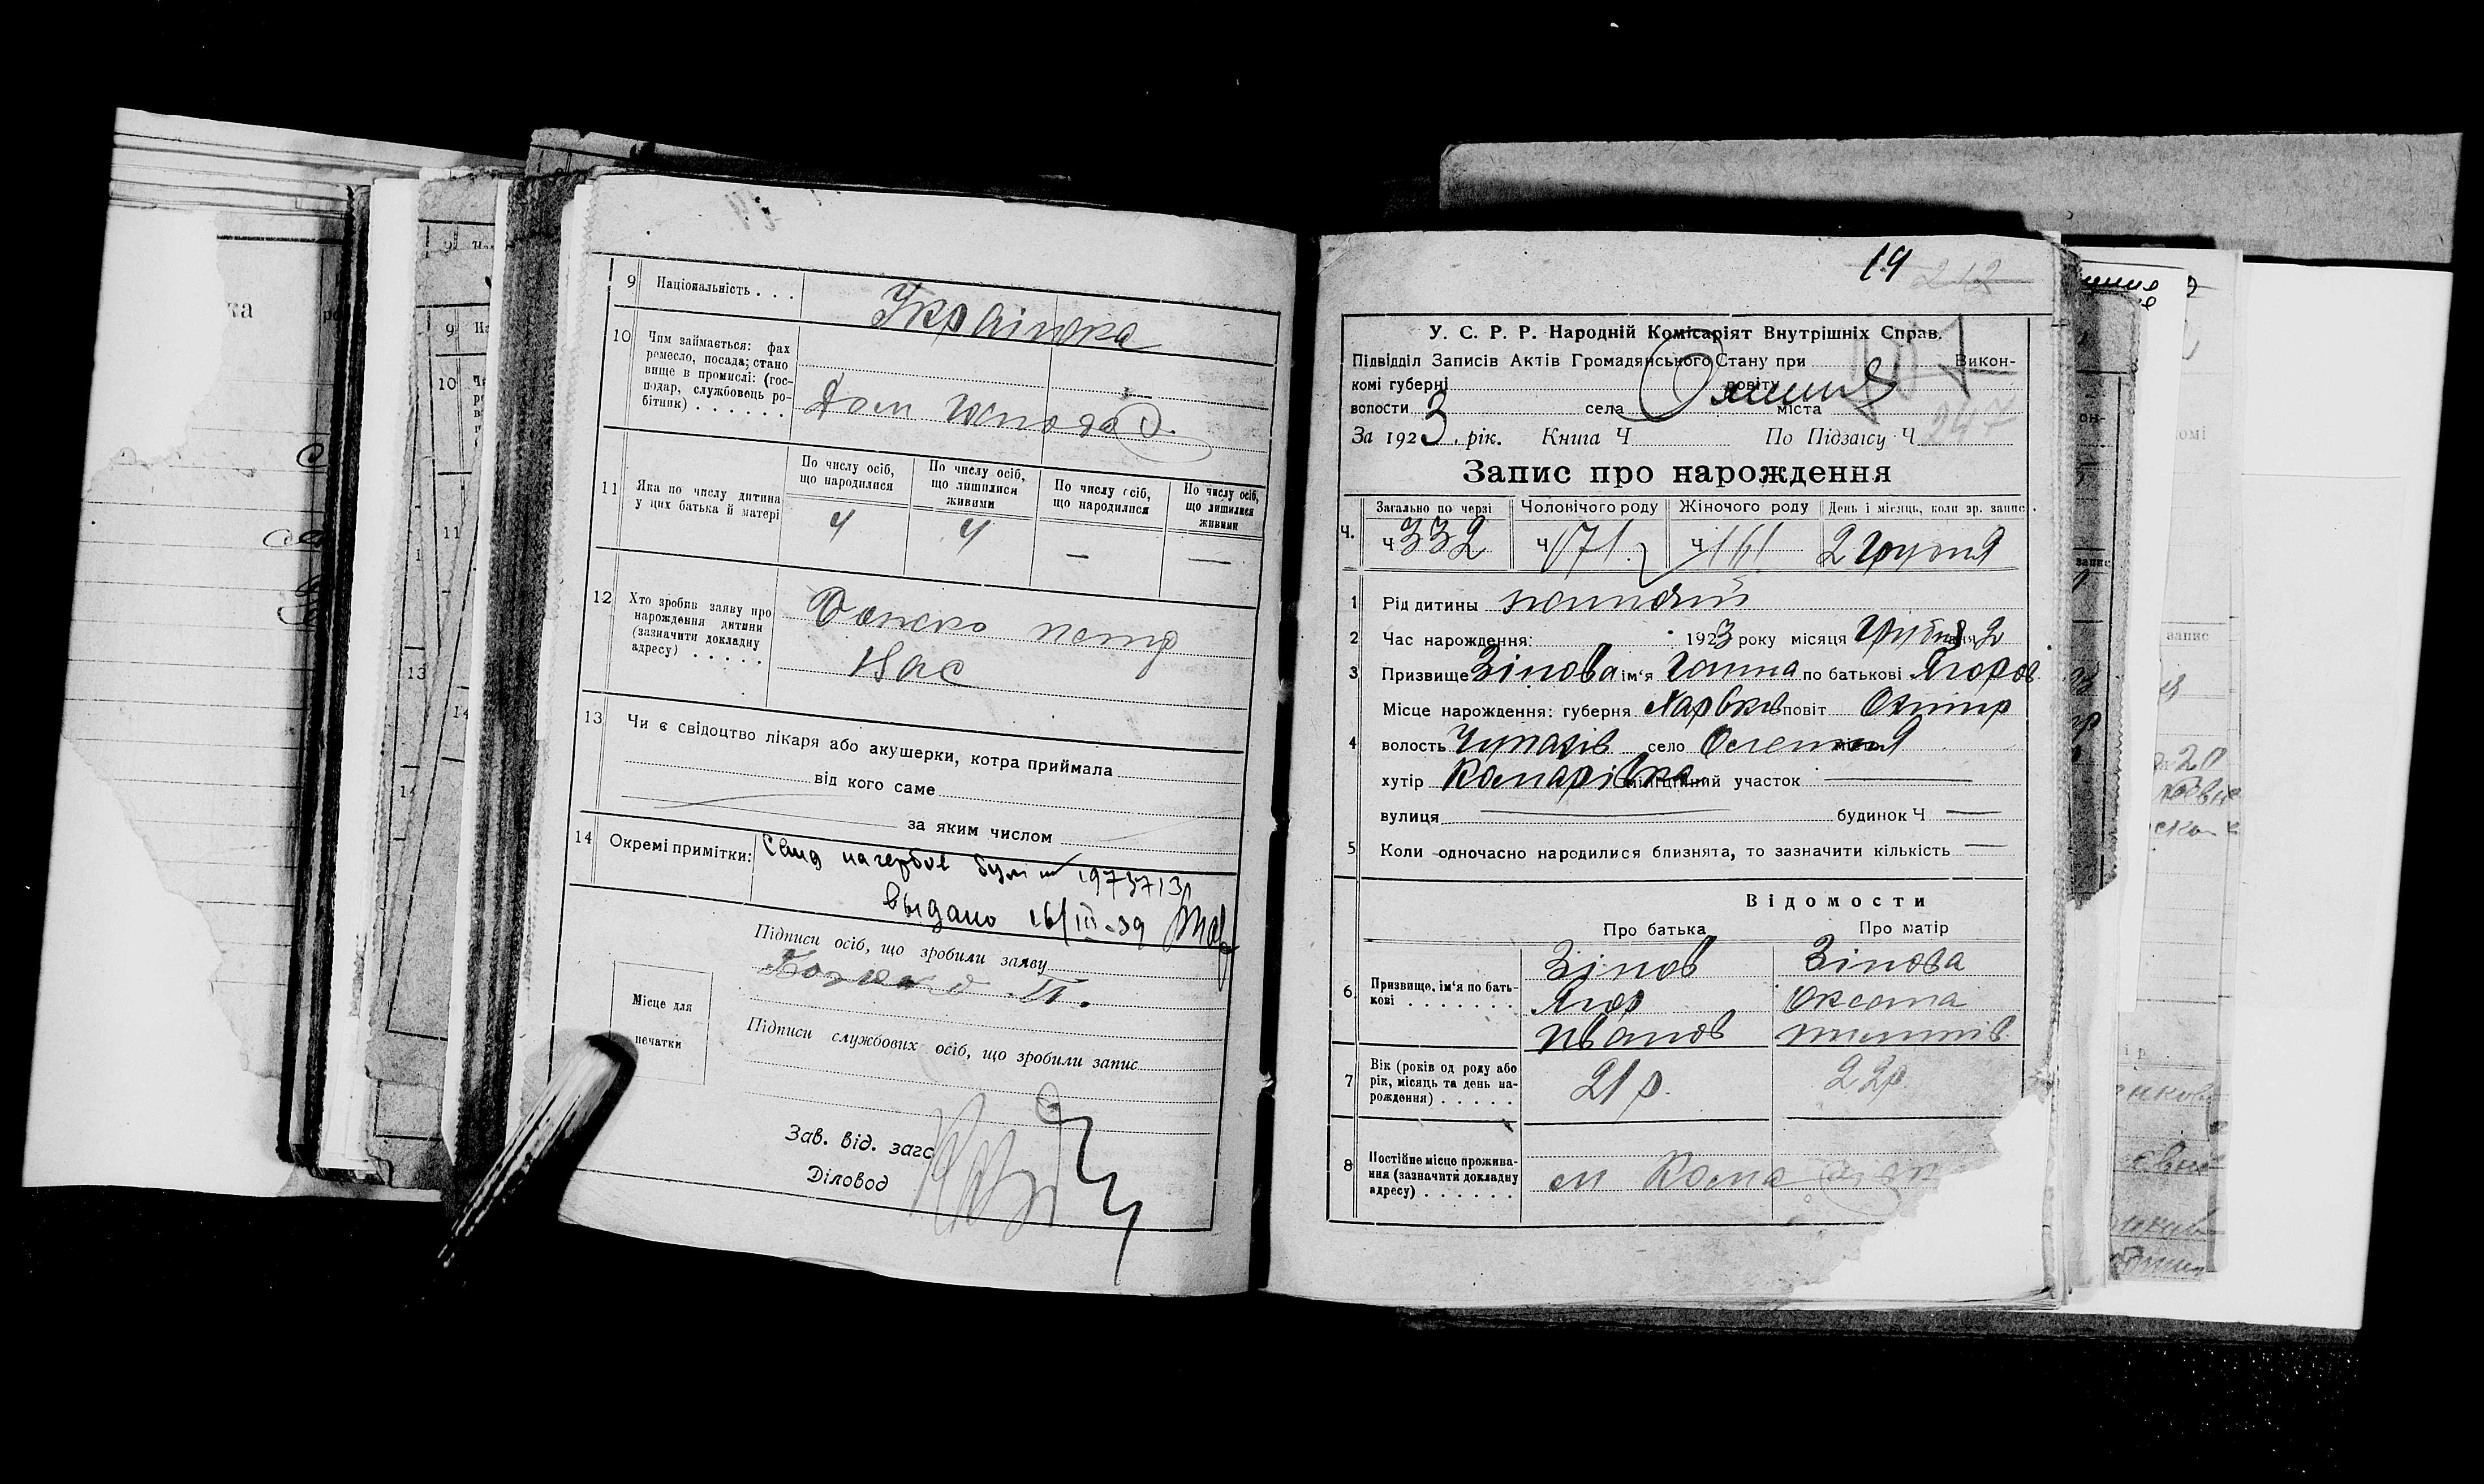 9 Національність . . . Українка
10 Чим займається: фах
ремесло, посада; стано
вище в промислі: (гос-
подар, службовець ро-
бітник) . . . . . . Дом господ
11 Яка по числу дитина
у цих батька й матері
По числу осіб,
що народилися
По числу осіб,
що лишилися
живими
По числу осіб,
що народилися
По числу осіб,
що лишилися
живими
4 4 — —
12 Хто зробив заяву про
нарождення дитини
(зазначити докладну
адресу) . . . . .
петр
13 Чи є свідоцтво лікаря або акушерки, котра приймала
від кого саме
за яким числом
14 Окремі примітки:
выдано 16/III-39
Підписи осіб, що зробили заяву
П.
Місце для
печатки
Підписи службових осіб, що зробили запис
Зав. від. загс
Діловод
19 212
У. С. Р. Р. Народній Комісаріят Внутрішніх Справ.
Підвідділ Записів Актів Громадянського Стану при Викон-
комі губерні повіту
волости села міста
За 1923 рік. Книга Ч По Підзагсу Ч 247
Запис про нарождення
Загально по черзі Чоловічого роду Жіночого роду День і місяць, коли зр. запис
Ч. Ч 332 Ч 171 Ч 161 2 грудня
1 Рід дитини
2 Час нарождення: 1923 року місяця грудня дня 2
3 Призвище Зінова ім'я Ганна по батькові Ягоров
4 Місце нарождення: губерня Харьков повіт Охтир
волость Чупахів село Олешня
хутір Комарівка міліційний участок —
вулиця — будинок Ч —
5 Коли одночасно народилися близнята, то зазначити кількість —
Відомости
Про батька Про матір
6 Призвище, ім'я по бать-
кові . . . . . . .
Зінов Зінова
Ягор Оксана
Иванов
7 Вік (років од роду або
рік, місяць та день на-
рождення) . . . . . 21 р. 22 р.
8 Постійне місце прожива-
ння (зазначити докладну
адресу) . . . . . .